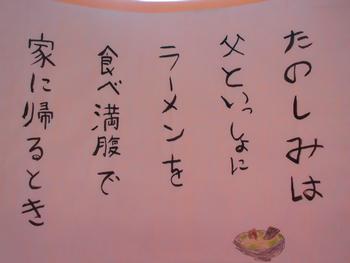 たのしみは
父といっしょに
ラーメンを
食べ満腹で
家に帰るとき